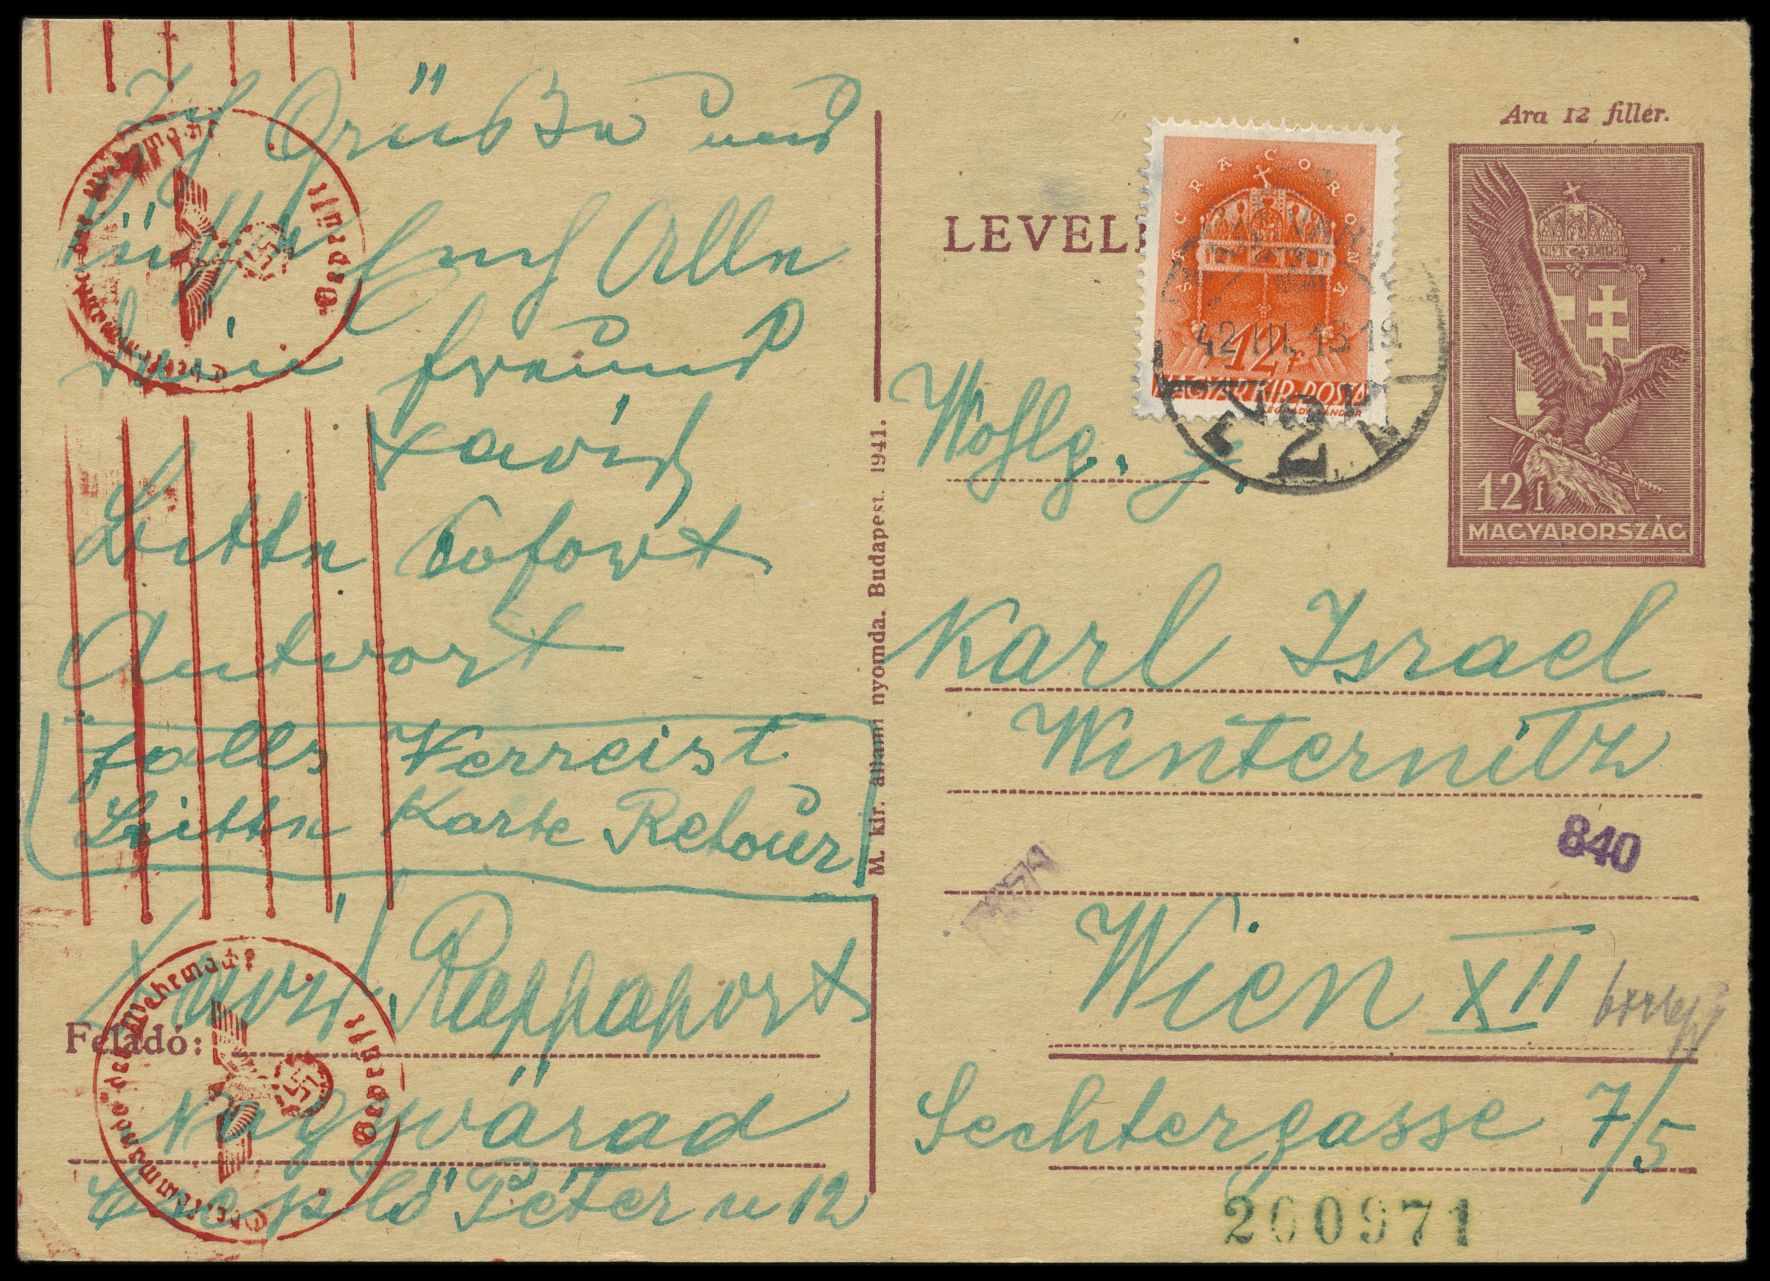 Ich Grüße und
küsse Euch Alle
dein freund
David
Bitte Sofort
Antwort
falls Verreist
Bitte Karte Retour
David Rappaport
Feladó:
Nagyvárad
Cseplő Péter u 12
Oberkommando der Wehrmacht
Geprüft
Oberkommando der Wehrmacht
Geprüft
M. kir. állami nyomda. Budapest. 1941.
Ára 12 fillér.
LEVEL
SACRA CORONA
12f
MAGYAR KIR. POSTA
LÉGRÁDY SÁNDOR
42 III. 13 12
12 f
MAGYARORSZÁG
Wohlg.
Karl Israel
Winternitz
840
Wien XII
Sechtergasse 7/5
200971